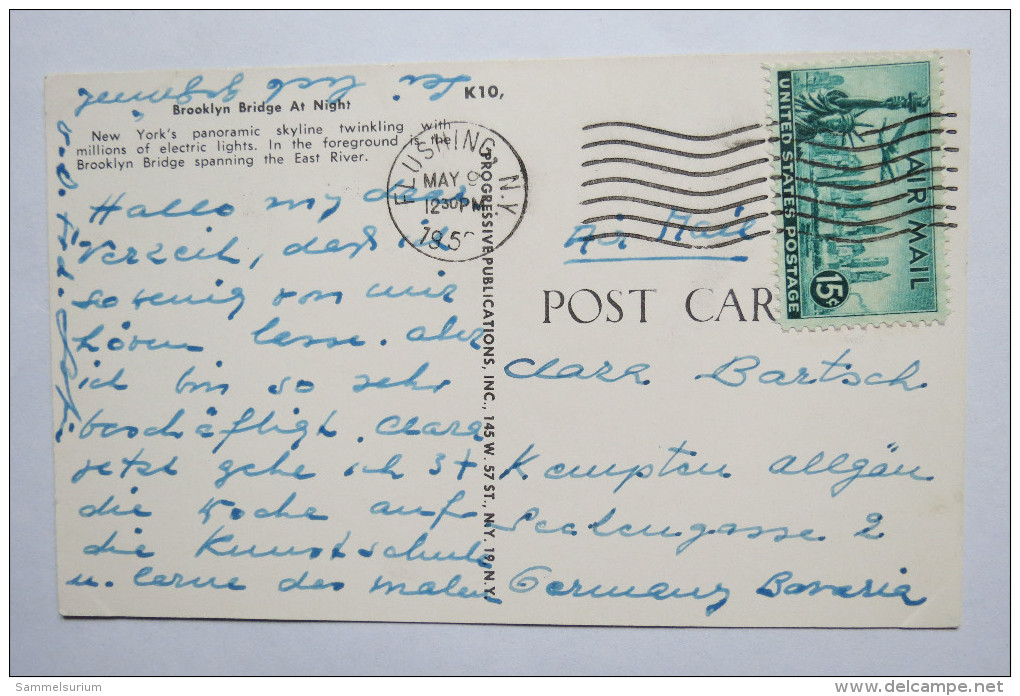 Brooklyn Bridge At Night
New York's panoramic skyline twinkling with
millions of electric lights. In the foreground is the
Brooklyn Bridge spanning the East River.
K10,
Hallo my dear
Verzeih, daß ich
so wenig von mir
hören lasse. aber
ich bin so sehr
beschäftigt. Clara
jetzt gehe ich 3x
die Woche auf
die Kunstschule
u. lerne das malen
Sei lieb gegrüßt
PROGRESSIVE PUBLICATIONS, INC., 145 W. 57 ST., N.Y. 19, N.Y.
FLUSHING, N.Y.
MAY 9
12 30 PM
195
UNITED STATES POSTAGE
AIR MAIL
15¢
Air Mail
POST CAR
Clara Bartsch
Kempten Allgäu
Seelengasse 2
Germany Bavaria
Sammelsurium
www.delcampe.net